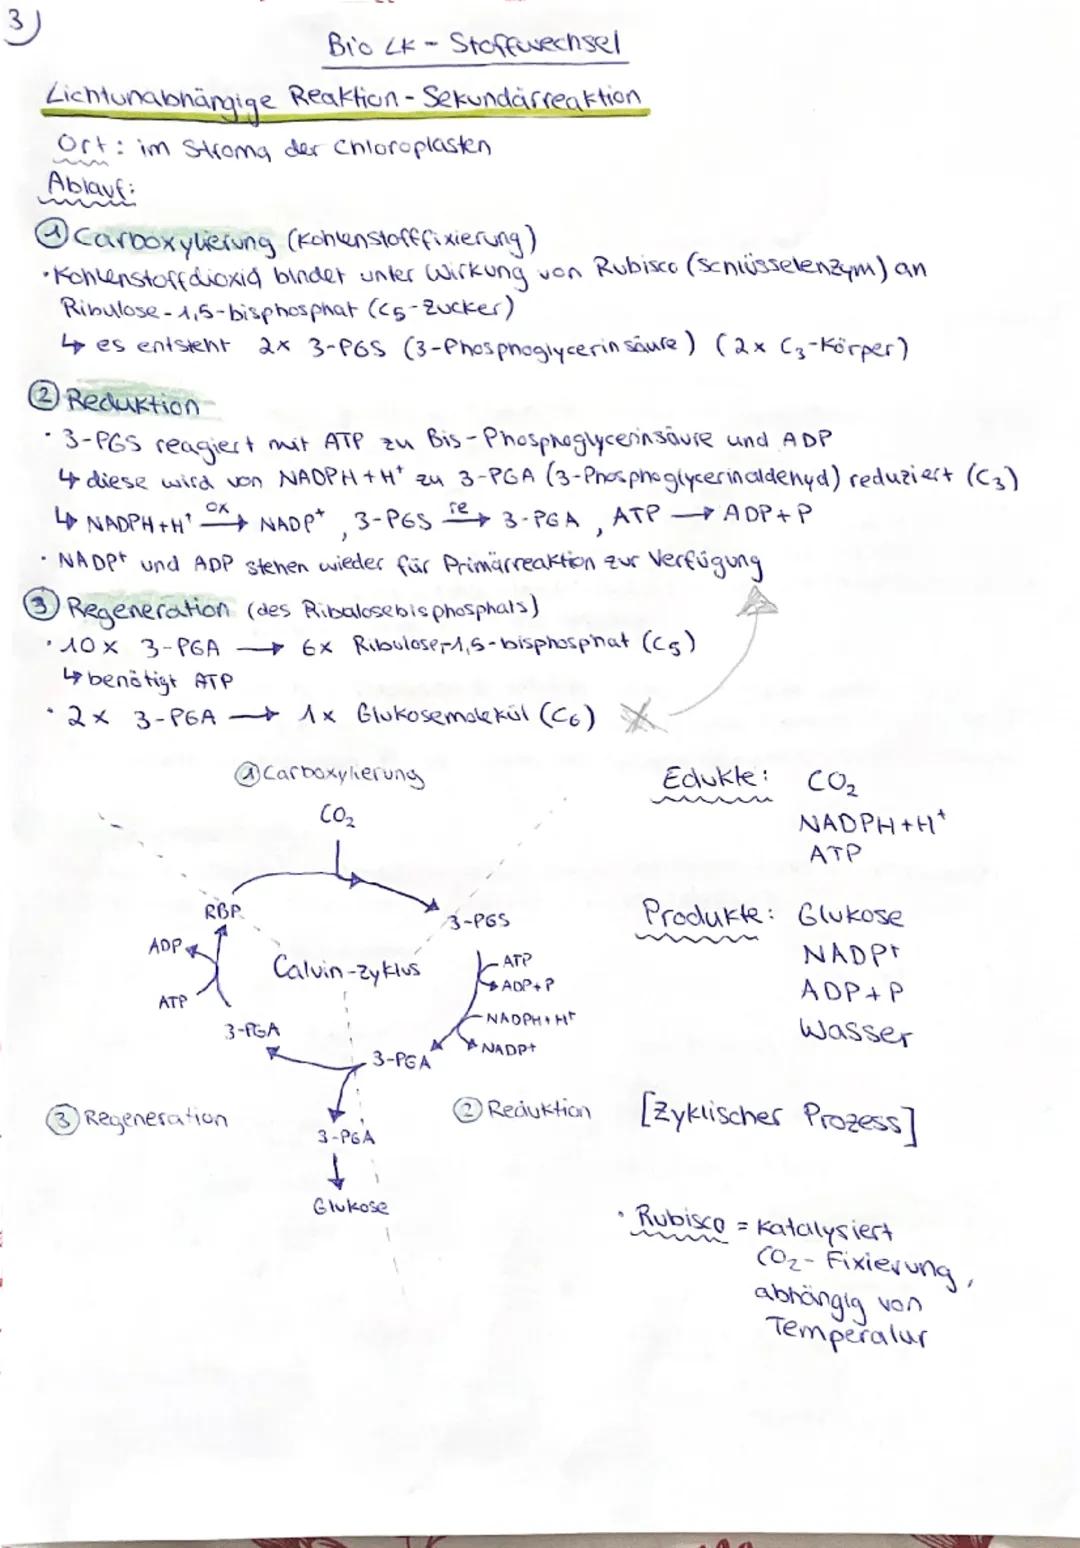 3)
Bio LK - Stoffwechsel
Lichtunabhängige Reaktion - Sekundärreaktion
Ort: im Stroma der Chloroplasten
Ablauf:
① Carboxylierung (Kohlenstofffixierung)
• Kohlenstoffdioxid bindet unter Wirkung von Rubisco (Schlüsselenzym) an
Ribulose-1,5-bisphosphat (C5-Zucker)
↳ es entsteht 2x 3-PGS (3-Phosphoglycerinsäure) (2x C3-Körper)
② Reduktion
• 3-PGS reagiert mit ATP zu Bis-Phosphoglycerinsäure und ADP
↳ diese wird von NADPH+H⁺ zu 3-PGA (3-Phosphoglycerinaldehyd) reduziert (C3)
↳ NADPH+H⁺ ox→ NADP⁺, 3-PGS re→ 3-PGA, ATP → ADP+P
• NADP⁺ und ADP stehen wieder für Primärreaktion zur Verfügung
③ Regeneration (des Ribalosebisphosphats)
• 10x 3-PGA → 6x Ribulose-1,5-bisphosphat (C5)
↳ benötigt ATP
• 2x 3-PGA → 1x Glukosemolekül (C6)
① Carboxylierung
CO2
RBP
3-PGS
ADP
ATP
Calvin-Zyklus
ATP
ADP+P
NADPH+H⁺
NADP+
3-PGA
3-PGA
③ Regeneration
② Reduktion
3-PGA
Glukose
Edukte: CO2
NADPH+H⁺
ATP
Produkte: Glukose
NADP⁺
ADP+P
Wasser
[Zyklischer Prozess]
• Rubisco = Katalysiert
CO2-Fixierung,
abhängig von
Temperatur